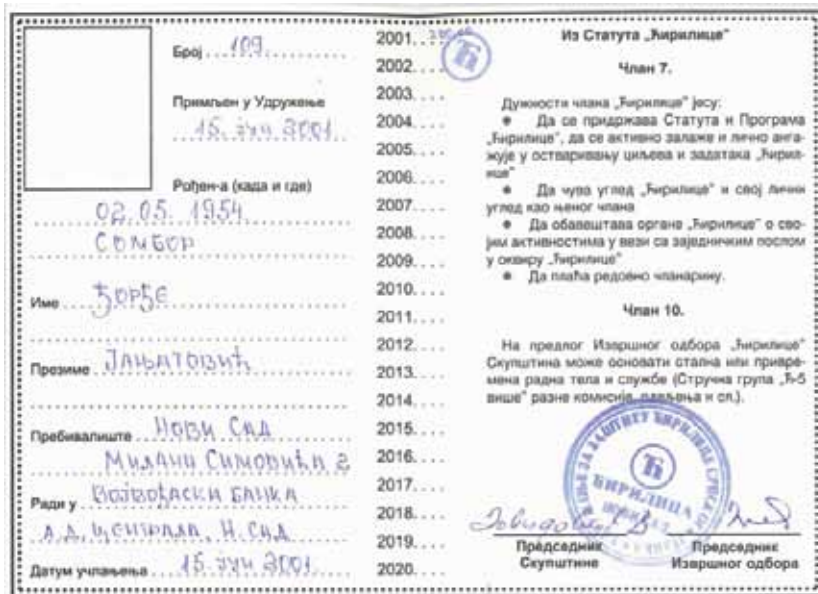 Број 109
Примљен у Удружење
15. јун 2001.
Рођен-а (када и где)
02.05. 1954.
СОМБОР
Име ЂОРЂЕ
Презиме ЈАЊАТОВИЋ
Пребивалиште НОВИ САД
МИЛАНА СИМОВИЋА 2
Ради у ВОЈВОЂАСКА БАНКА
А.Д. ЦЕНТРАЛА, Н. САД
Датум учлањења 15. јун 2001.
2001....
2002....
2003....
2004....
2005....
2006....
2007....
2008....
2009....
2010....
2011....
2012....
2013....
2014....
2015....
2016....
2017....
2018....
2019....
2020....
Ћ
Из Статута „Ћирилице"
Члан 7.
Дужности члана „Ћирилице" јесу:
● Да се придржава Статута и Програма
„Ћирилице", да се активно залаже и лично анга-
жује у остваривању циљева и задатака „Ћирил-
ице"
● Да чува углед „Ћирилице" и свој лични
углед као њеног члана
● Да обавештава органе „Ћирилице" о сво-
јим активностима у вези са заједничким послом
у оквиру „Ћирилице"
● Да плаћа редовно чланарину.
Члан 10.
На предлог Извршног одбора „Ћирилице"
Скупштина може основати стална или привре-
мена радна тела и службе (Стручна група „Ћ-5
више" разне комисије, одељења и сл.).
Ћ
ЋИРИЛИЦА
НОВИ САД
Председник
Скупштине
Председник
Извршног одбора